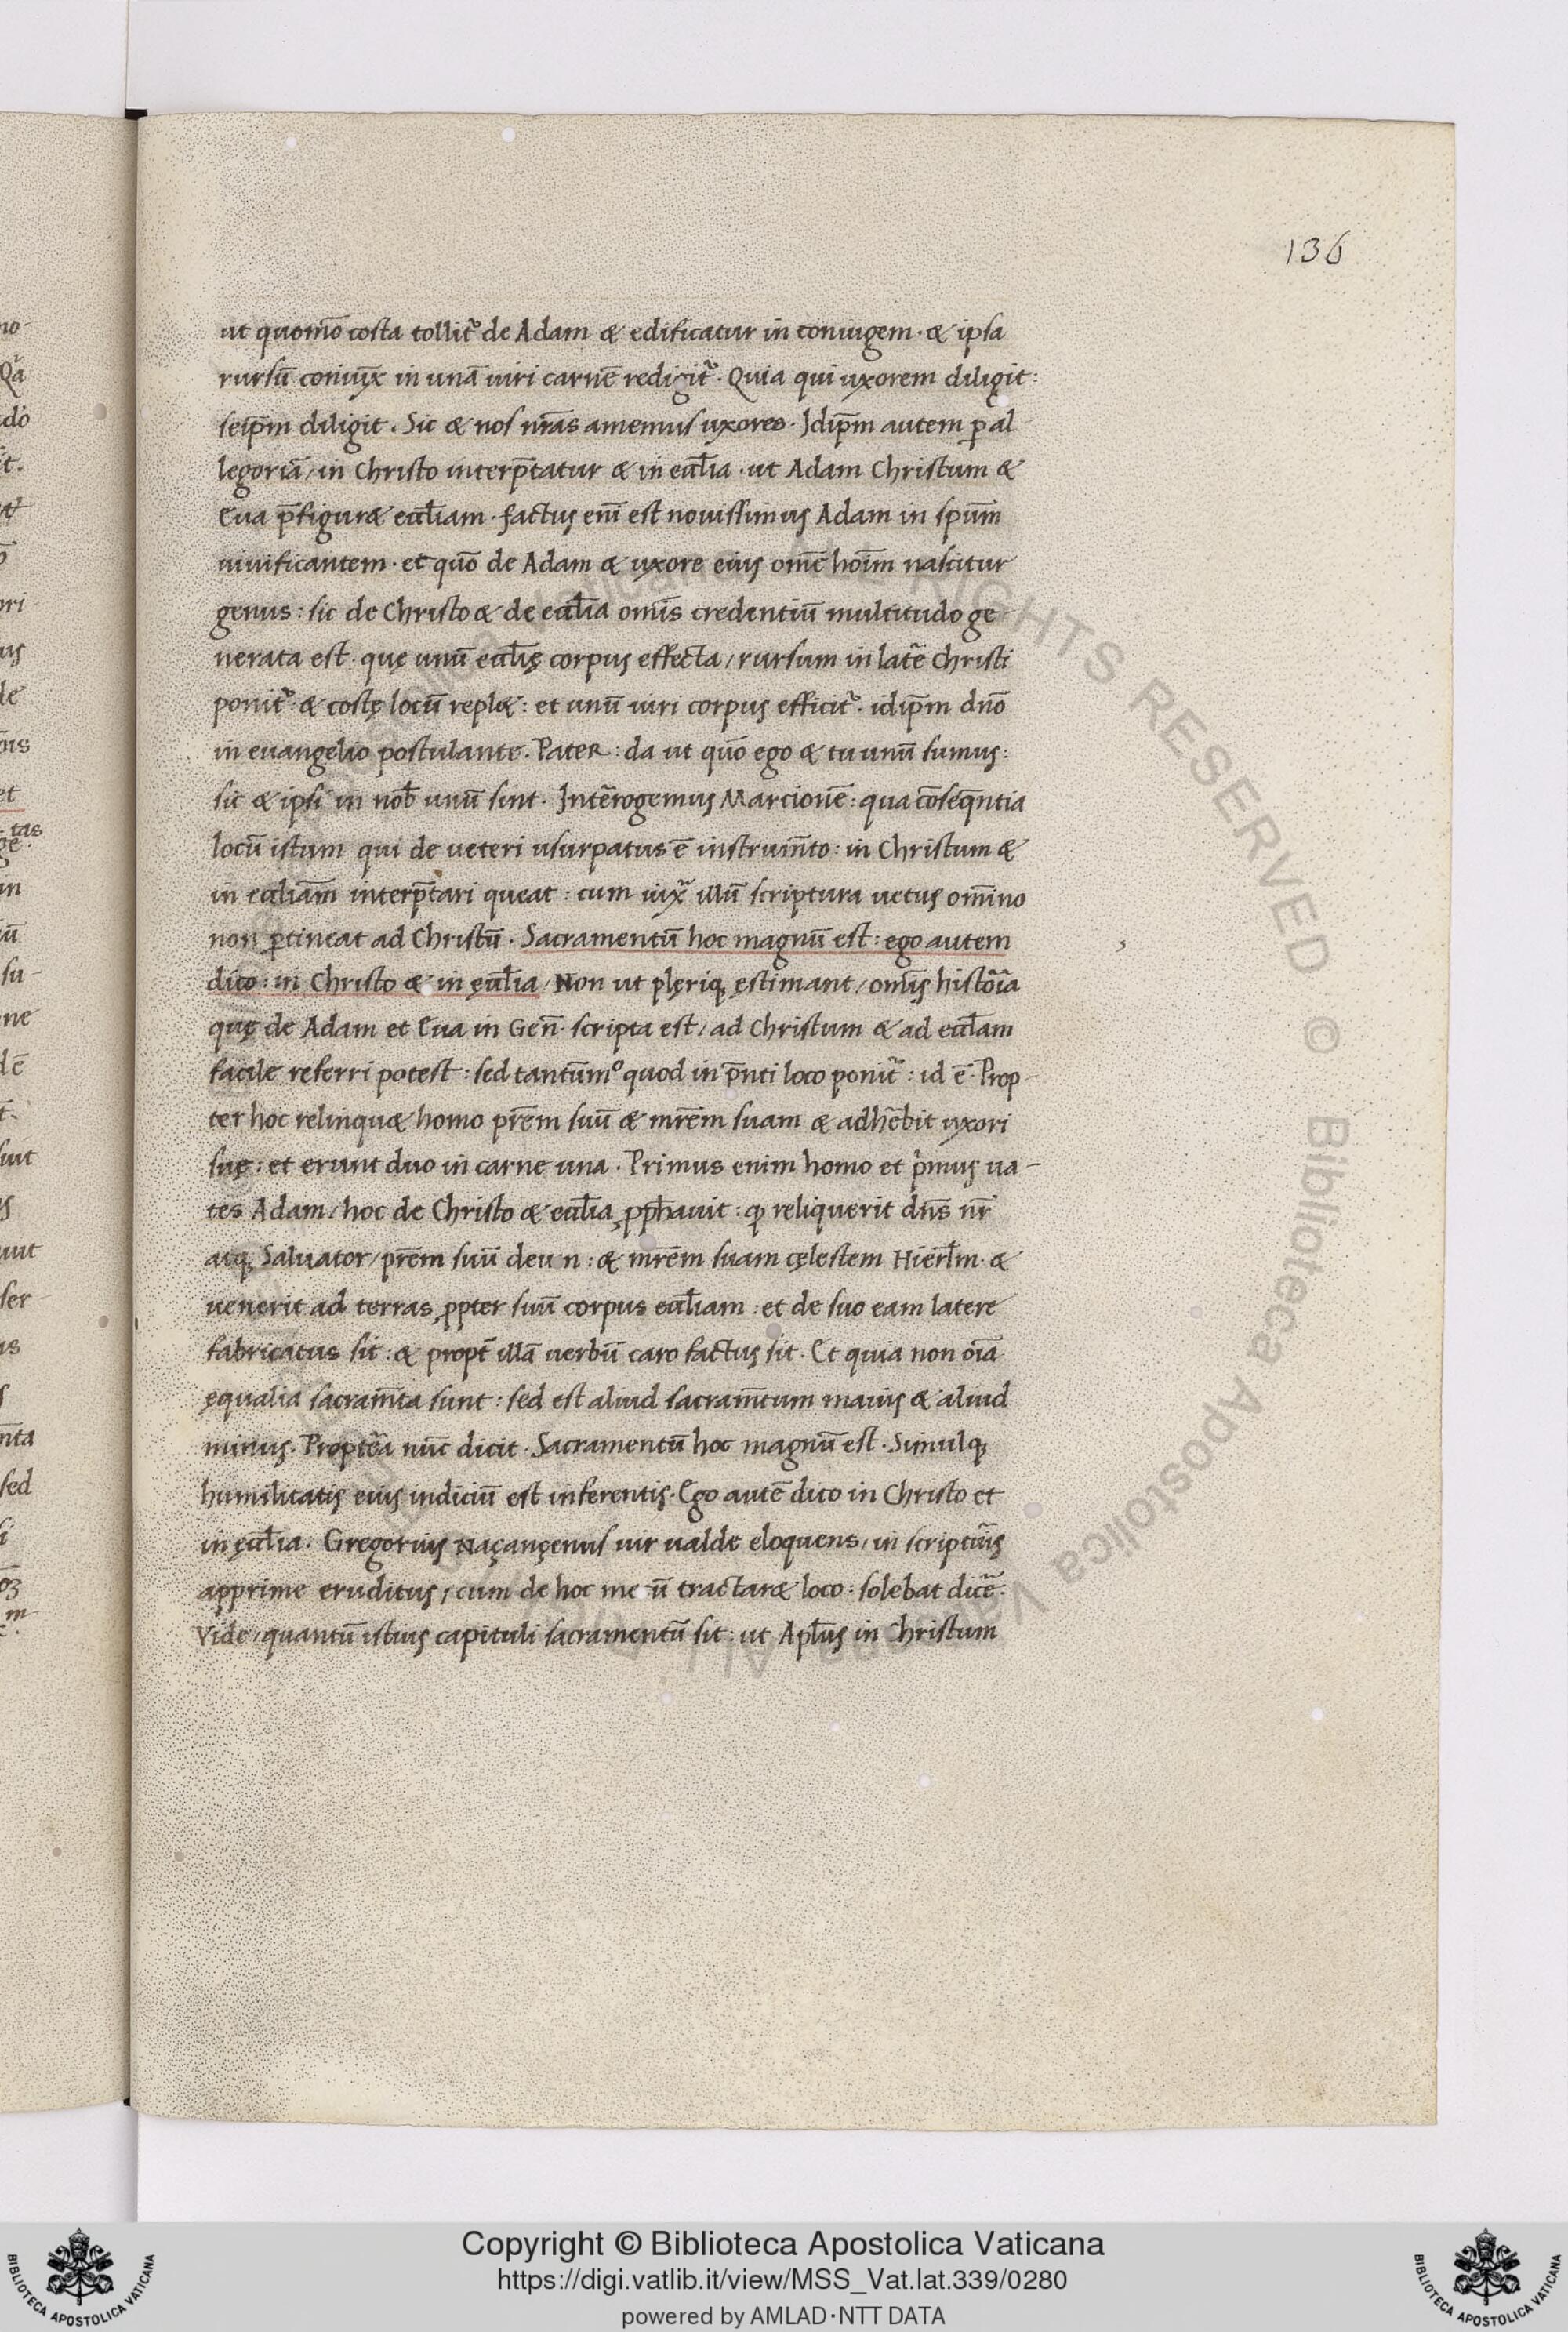 136
ut quomō costa tollit᷑ de Adam & edificatur in coniugem · & ipsa
rursū coniux in unā uiri carnē redigit᷑ · Quia qui uxorem diligit :
seip̄m diligit . Sic & nos nr̄as amemus uxores · Idip̄m autem ꝑ al
legoriā / in Christo interp̄tatur & in eccl̄ia · ut Adam Christum &
Eua p̄figur& eccl̄iam · factus eni᷑ est nouissimus Adam in spūm
uiuificantem · et quō de Adam & uxore eius om̄e hoīm nascitur
genus : sic de Christo & de eccl̄ia omīs credentiū multitudo ge-
nerata est · quę unū eccl̄ię corpus effecta / rursum in lat̄e Christi
ponit᷑ · & costę locū repl& : et unū uiri corpus efficit᷑ · idip̄m dn̄o
in euangelio postulante . Pater : da ut quō ego & tu unū sumus :
sic & ipsi in nob̄ unū sint · Int̄erogemus Marcionē : qua cōseq̄ntia
locū istum qui de ueteri usurpatus ē instrum̄to : in Christum &
in eccl̄iam interp̄tari queat : cum iux̄ illū scriptura uetus om̄ino
non ꝑtineat ad Christū · Sacramentū hoc magnū est : ego autem
dico : in Christo & in ęccl̄ia / Non ut plęriq; ęstimant / omīs histōia
quę de Adam et Eua in Geñ · scripta est / ad Christum & ad eccl̄am
facile referri potest : sed tantūm° quod in p̄nti loco ponit᷑ : id ē · Prop-
ter hoc relinqu& homo pr̄em suū & mr̄em suam & adhēbit uxori
suę : et erunt duo in carne una · Primus enim homo et p̄mus ua-
tes Adam / hoc de Christo & eccl̄ia ꝓph̄auit : ꝙ reliquerit dn̄s nr̄
atq; Saluator / pr̄em suū deum : & mr̄em suam cęlestem Hierl̄m · &
uenerit ad terras ꝓpter suū corpus eccl̄iam : et de suo eam latere
fabricatus sit : & propt̄ illā uerbū caro factus sit · Et quia non oīa
ęqualia sacram̄ta sunt : sed est aliud sacram̄tum maius & aliud
minus · Propt̄ea nūc dicit · Sacramentū hoc magnū est · Simulq;
humilitatis eius indiciū est inferentis · Ego autē dico in Christo et
in ęccl̄ia . Gregorius Naçançenus uir ualde eloquens / in scriptūis
apprime eruditus / cum de hoc mecū tractar& loco : solebat dicē :
Vide / quantū istius capituli sacramentū sit : ut Apl̄us in Christum
Copyright © Biblioteca Apostolica Vaticana
https://digi.vatlib.it/view/MSS_Vat.lat.339/0280
powered by AMLAD·NTT DATA